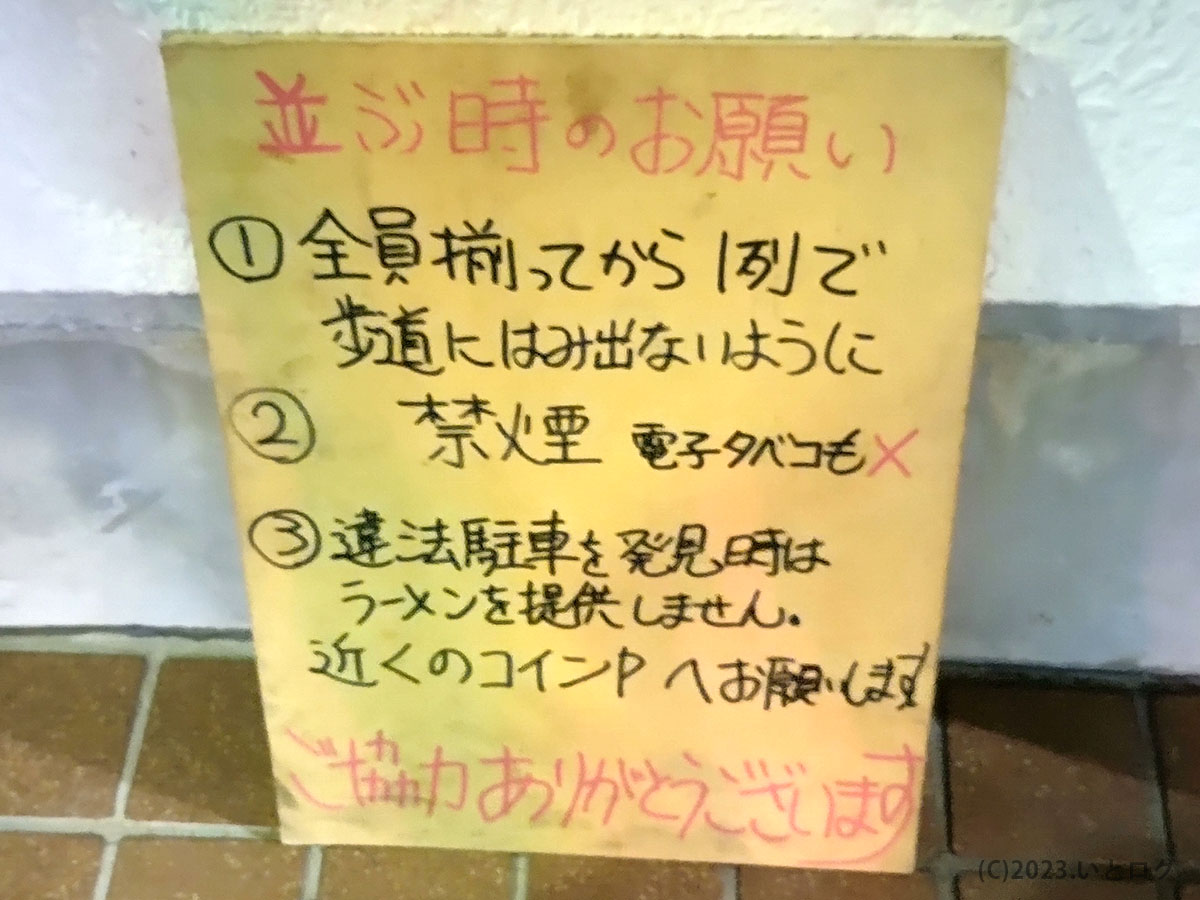 並ぶ時のお願い
① 全員揃ってから 1列で
歩道にはみ出ないように
② 禁煙 電子タバコも×
③ 違法駐車を発見時は
ラーメンを提供しません。
近くのコインP へお願いします
ご協力ありがとうございます
(C)2023.いとログ